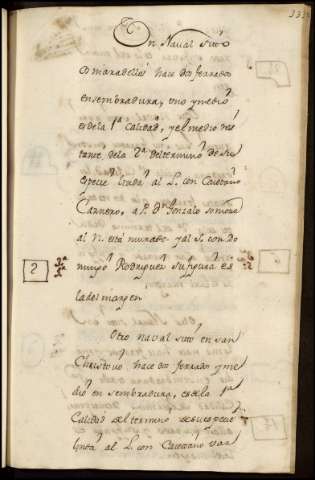 Un Naval sito
Camaradellas hace dos ferrados
en sembradura, uno y medio
es dela 1ª calidad, y el medio res
tante, dela 2ª del termino de su
especie linda al L. con Caietano
Carnero, a P. Dⁿ Gonzalo
al N. està murado y al S. con Do
mingo Rodriguez su figura es
la del margen
2
Otro naval sito en san
Christovo hace dos ferrados y me
dio en sembradura, es dela 1ª
Calidad del termino de su especie
linda al L. con Caietano